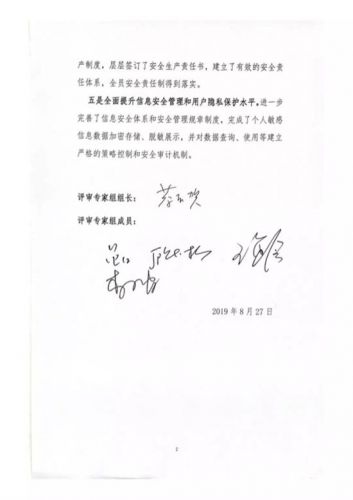 产制度，层层签订了安全生产责任书，建立了有效的安全责
任体系，全员安全责任制得到落实。
五是全面提升信息安全管理和用户隐私保护水平。进一步
完善了信息安全体系和安全管理规章制度，完成了个人敏感
信息数据加密存储、脱敏展示，并对数据查询、使用等建立
严格的策略控制和安全审计机制。
评审专家组组长：
评审专家组成员：
2019 年 8 月 27 日
2